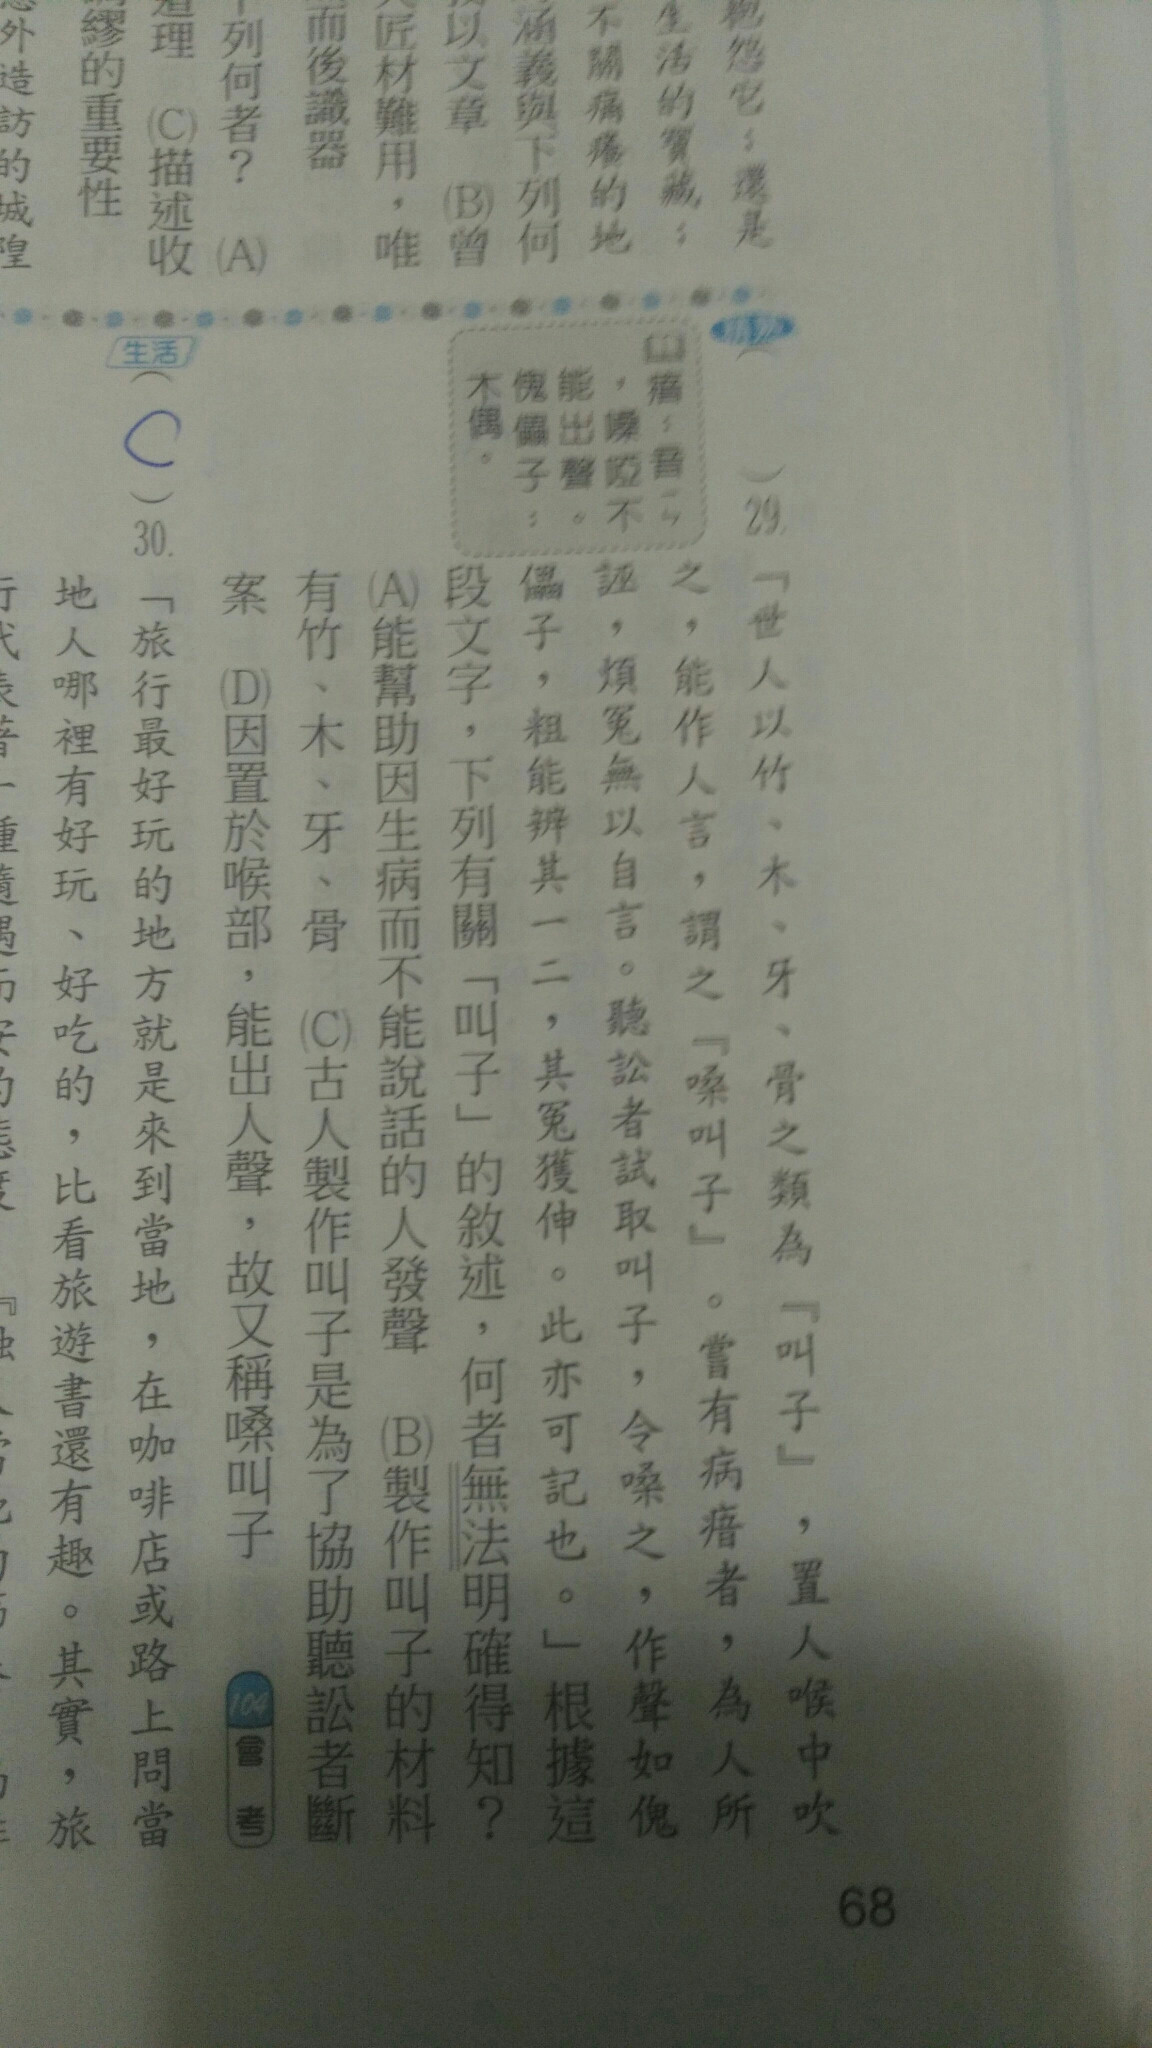 抱怨它；還是
生活的寶藏；
不關痛癢的地
涵義與下列何
以文章　(B)曾
匠材難用，唯
而後識器
列何者？　(A)
道理　(C)描述收
繆的重要性
意外造訪的城隍
(　　)29.「世人以竹、木、牙、骨之類為『叫子』，置人喉中吹
之，能作人言，謂之『嗓叫子』。嘗有病瘖者，為人所
誣，煩冤無以自言。聽訟者試取叫子，令嗓之，作聲如傀
儡子，粗能辨其一二，其冤獲伸。此亦可記也。」根據這
段文字，下列有關「叫子」的敘述，何者無法明確得知？
(A)能幫助因生病而不能說話的人發聲　(B)製作叫子的材料
有竹、木、牙、骨　(C)古人製作叫子是為了協助聽訟者斷
案　(D)因置於喉部，能出人聲，故又稱嗓叫子　104會考
瘖：音ㄧㄣ
，嗓啞不
能出聲。
傀儡子：
木偶。
生活
(C)30.「旅行最好玩的地方就是來到當地，在咖啡店或路上問當
地人哪裡有好玩、好吃的，比看旅遊書還有趣。其實，旅
行代表著一種隨遇而安的態度
68